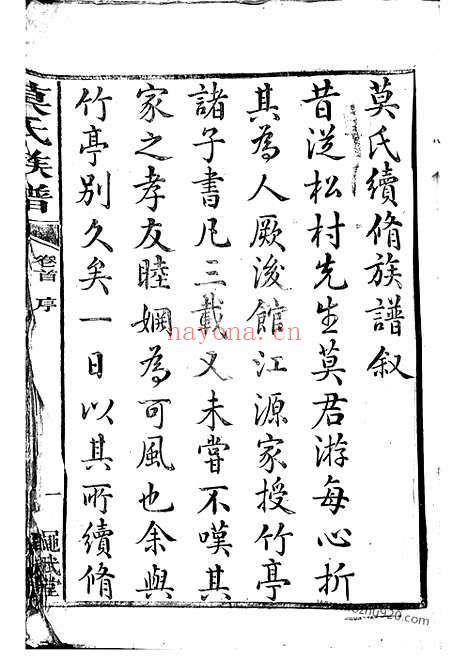 莫氏續脩族譜叙
昔從松村先生莫君游每心折
其為人厥後館江源家授竹亭
諸子書凡三載又未嘗不嘆其
家之孝友睦婣為可風也余與
竹亭別久矣一日以其所續脩
莫氏族譜
卷首 序
一
hayona.com.cn